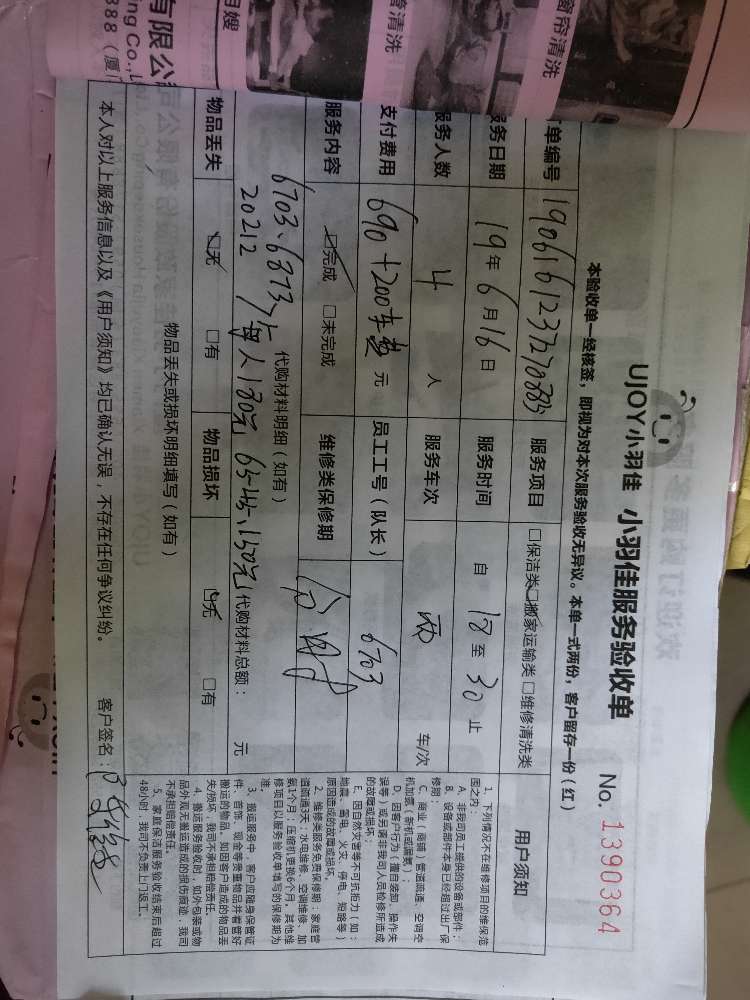 有限公司
888（厦门
目嫂
窗帘清洗
UJOY小羽佳 小羽佳服务验收单 No. 1390364
本验收单一经核签，即视为对本次服务验收无异议。本单一式两份，客户留存一份（红）
单编号
服务项目 □保洁类 ☑搬家运输类 □维修清洗类
务日期 19年6月16日 服务时间 自 18 至 30 止
服务人数 4 人 服务车次 两 车/次
支付费用 690+200 元 员工工号（队长） 6703
服务内容 ☑完成 □未完成 维修类保修期
代购材料明细（如有）
6703、6873
20212 每人180元
代购材料总额： 元
物品丢失 ☑无 □有 物品损坏 ☑无 □有
物品丢失或损坏明细填写（如有）
本人对以上服务信息以及《用户须知》均已确认无误，不存在任何争议纠纷。 客户签名：
用户须知
1、下列情况不在维修项目的维保范围之内：
A、非我司员工提供的设备或部件；
B、设备或部件本身已经超过出厂保修期；
C、商业（商铺）管道疏通、空调空机加氨（新机或漏氨）；
D、因客户行为（擅自装卸、操作失误等）或另请非我司人员检修所造成的故障或损坏；
E、因自然灾害等不可抗拒力（如：地震、雷电、火灾、停电、短路等）原因造成的故障或损坏。
2、维修类服务免费保修期：家庭管道疏通3天；水电维修、空调维修、加氨1个月；压缩机更换6个月，其他维修项目以服务验收单填写的保修期为准。
3、搬运服务中，客户应随身保管证件、首饰、现金等贵重物品并看管好搬运的物品，如因客户造成的物品丢失/损坏，我司不承担赔偿责任。
4、搬运服务验收时，如外包装或物品外观无搬运造成的损伤痕迹，我司不承担赔偿责任。
5、家庭保洁服务验收结束后超过48小时，我司不负责上门返工。